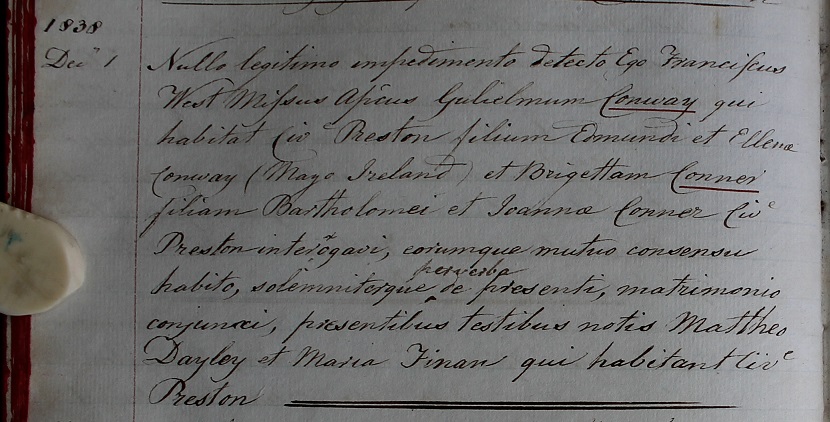 1838
Decʳ 1 Nullo legitimo impedimento detecto Ego Franciscus
West Missus Apĉus Gulielmum Conway qui
habitat Civᵉ Preston filium Edmundi et Ellenæ
Conway (Mayo Ireland) et Brigettam Conner
filiam Bartholomei et Joannæ Conner Civᵉ
Preston interogavi, eorumque mutuo consensu
per verba
habito, solemniterque de presenti, matrimonio
conjunxi, presentibus testibus notis Mattheo
Dayley et Maria Finan qui habitant Civᵉ
Preston